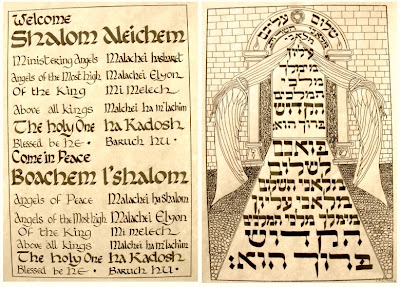 Welcome
Shalom Aleichem
Ministering Angels Malachei hasharet
Angels of the Most high Malachei Elyon
Of the King Mi Melech
Above all kings Malchei ha m'lachim
The holy One ha Kadosh
Blessed be He • Baruch hu •
Come in Peace
Boachem l'shalom
Angels of Peace Malachei ha shalom
Angels of the Most high Malachei Elyon
Of the King Mi melech
Above all kings Malchei ha m'lachim
The holy One ha Kadosh
Blessed be he • Baruch hu •
שלום עליכם
מלאכי
עליון
ממלך
מלכי
המלכים
הקדוש
ברוך הוא:
בואכם
לשלום
מלאכי השלום
מלאכי עליון
ממלך מלכי המלכים
הקדוש
ברוך הוא: